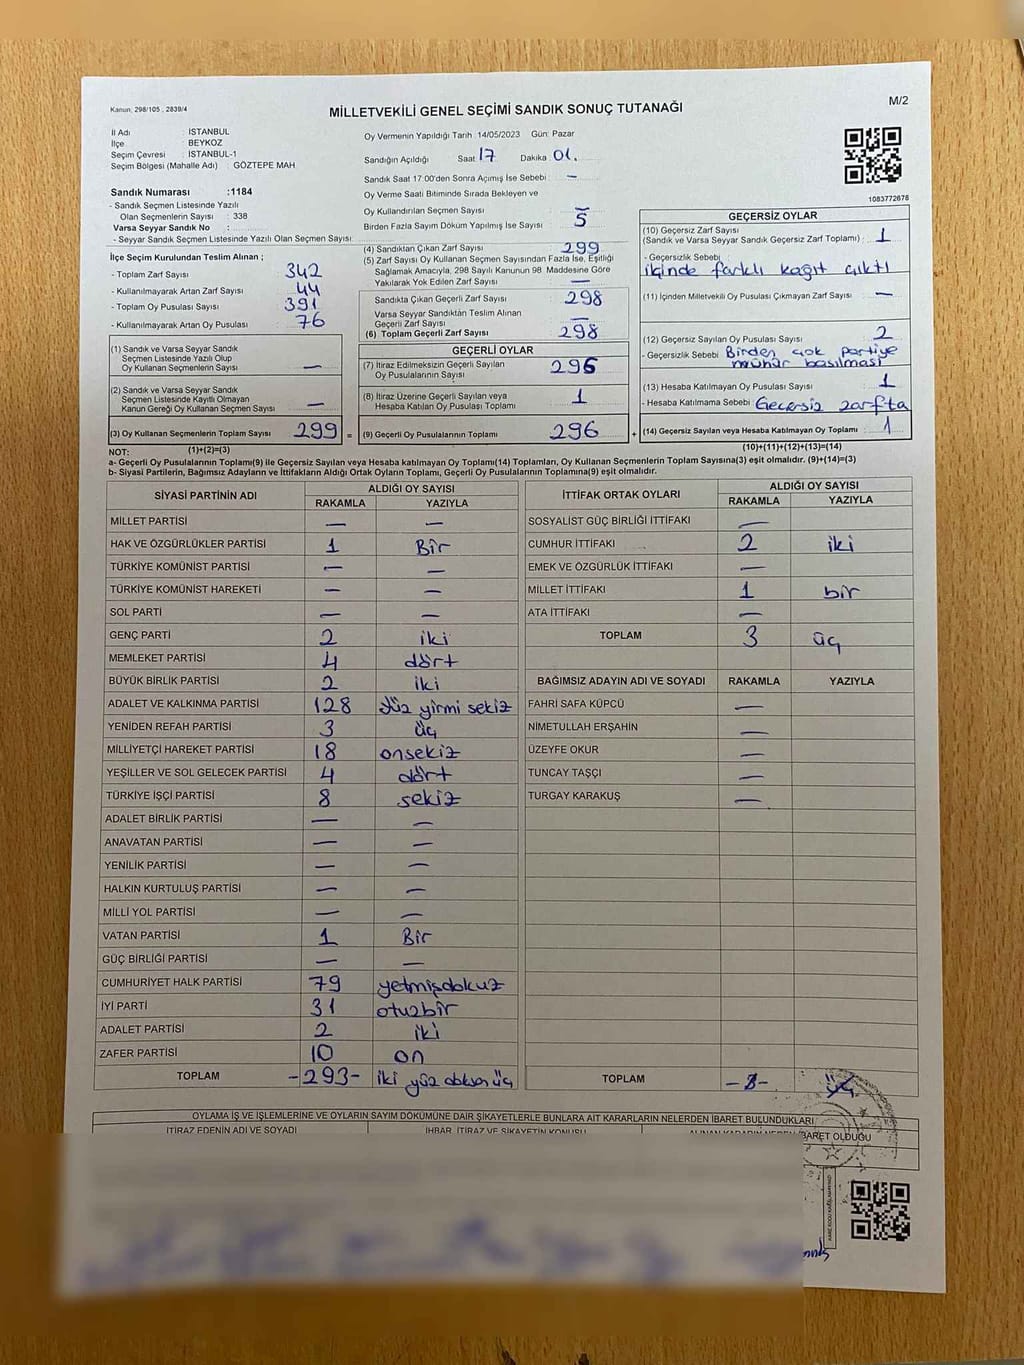 Kanun: 298/105 , 2839/4
MİLLETVEKİLİ GENEL SEÇİMİ SANDIK SONUÇ TUTANAĞI
M/2
İl Adı : İSTANBUL
İlçe : BEYKOZ
Seçim Çevresi : İSTANBUL-1
Seçim Bölgesi (Mahalle Adı) : GÖZTEPE MAH
Sandık Numarası :1184
- Sandık Seçmen Listesinde Yazılı
Olan Seçmenlerin Sayısı : 338
Varsa Seyyar Sandık No :
- Seyyar Sandık Seçmen Listesinde Yazılı Olan Seçmen Sayısı:
İlçe Seçim Kurulundan Teslim Alınan ;
- Toplam Zarf Sayısı : 342
- Kullanılmayarak Artan Zarf Sayısı : 44
- Toplam Oy Pusulası Sayısı : 391
- Kullanılmayarak Artan Oy Pusulası : 76
(1) Sandık ve Varsa Seyyar Sandık
Seçmen Listesinde Yazılı Olup
Oy Kullanan Seçmenlerin Sayısı : —
(2) Sandık ve Varsa Seyyar Sandık
Seçmen Listesinde Kayıtlı Olmayan
Kanun Gereği Oy Kullanan Seçmen Sayısı : —
(3) Oy Kullanan Seçmenlerin Toplam Sayısı 299 =
(1)+(2)=(3)
Oy Vermenin Yapıldığı Tarih : 14/05/2023 Gün: Pazar
Sandığın Açıldığı Saat 17 Dakika 01.
Sandık Saat 17:00'den Sonra Açımış İse Sebebi : —
Oy Verme Saati Bitiminde Sırada Bekleyen ve
Oy Kullandırılan Seçmen Sayısı : —
Birden Fazla Sayım Döküm Yapılmış İse Sayısı : 5
(4) Sandıktan Çıkan Zarf Sayısı : 299
(5) Zarf Sayısı Oy Kullanan Seçmen Sayısından Fazla İse, Eşitliği
Sağlamak Amacıyla, 298 Sayılı Kanunun 98. Maddesine Göre
Yakılarak Yok Edilen Zarf Sayısı : —
Sandıkta Çıkan Geçerli Zarf Sayısı : 298
Varsa Seyyar Sandıktan Teslim Alınan
Geçerli Zarf Sayısı : —
(6) Toplam Geçerli Zarf Sayısı : 298
GEÇERLİ OYLAR
(7) İtiraz Edilmeksizin Geçerli Sayılan
Oy Pusulalarının Sayısı : 295
(8) İtiraz Üzerine Geçerli Sayılan veya
Hesaba Katılan Oy Pusulası Toplamı : 1
(9) Geçerli Oy Pusulalarının Toplamı 296 +
1083772676
GEÇERSİZ OYLAR
(10) Geçersiz Zarf Sayısı
(Sandık ve Varsa Seyyar Sandık Geçersiz Zarf Toplamı) : 1
- Geçersizlik Sebebi :
içinde farklı kağıt çıktı
(11) İçinden Milletvekili Oy Pusulası Çıkmayan Zarf Sayısı : —
(12) Geçersiz Sayılan Oy Pusulası Sayısı : 2
- Geçersizlik Sebebi : Birden çok partiye
mühür basılması
(13) Hesaba Katılmayan Oy Pusulası Sayısı : 1
- Hesaba Katılmama Sebebi : Gecersiz zarfta
(14) Geçersiz Sayılan veya Hesaba Katılmayan Oy Toplamı : 1
(10)+(11)+(12)+(13)=(14)
NOT:
a- Geçerli Oy Pusulalarının Toplamı(9) ile Geçersiz Sayılan veya Hesaba katılmayan Oy Toplamı(14) Toplamları, Oy Kullanan Seçmenlerin Toplam Sayısına(3) eşit olmalıdır. (9)+(14)=(3)
b- Siyasi Partilerin, Bağımsız Adayların ve İttifakların Aldığı Ortak Oyların Toplamı, Geçerli Oy Pusulalarının Toplamına(9) eşit olmalıdır.
SİYASİ PARTİNİN ADI ALDIĞI OY SAYISI
RAKAMLA YAZIYLA
MİLLET PARTİSİ — —
HAK VE ÖZGÜRLÜKLER PARTİSİ 1 Bir
TÜRKİYE KOMÜNİST PARTİSİ — —
TÜRKİYE KOMÜNİST HAREKETİ — —
SOL PARTİ — —
GENÇ PARTİ 2 iki
MEMLEKET PARTİSİ 4 dört
BÜYÜK BİRLİK PARTİSİ 2 iki
ADALET VE KALKINMA PARTİSİ 128 yüz yirmi sekiz
YENİDEN REFAH PARTİSİ 3 üç
MİLLİYETÇİ HAREKET PARTİSİ 18 onsekiz
YEŞİLLER VE SOL GELECEK PARTİSİ 4 dört
TÜRKİYE İŞÇİ PARTİSİ 8 sekiz
ADALET BİRLİK PARTİSİ — —
ANAVATAN PARTİSİ — —
YENİLİK PARTİSİ — —
HALKIN KURTULUŞ PARTİSİ — —
MİLLİ YOL PARTİSİ — —
VATAN PARTİSİ 1 Bir
GÜÇ BİRLİĞİ PARTİSİ — —
CUMHURİYET HALK PARTİSİ 79 yetmişdokuz
İYİ PARTİ 31 otuzbir
ADALET PARTİSİ 2 iki
ZAFER PARTİSİ 10 on
TOPLAM -293- iki yüz doksan üç
İTTİFAK ORTAK OYLARI ALDIĞI OY SAYISI
RAKAMLA YAZIYLA
SOSYALİST GÜÇ BİRLİĞİ İTTİFAKI —
CUMHUR İTTİFAKI 2 iki
EMEK VE ÖZGÜRLÜK İTTİFAKI —
MİLLET İTTİFAKI 1 bir
ATA İTTİFAKI —
TOPLAM 3 üç
BAĞIMSIZ ADAYIN ADI VE SOYADI RAKAMLA YAZIYLA
FAHRİ SAFA KÜPCÜ —
NİMETULLAH ERŞAHİN —
ÜZEYFE OKUR —
TUNCAY TAŞÇI —
TURGAY KARAKUŞ —
TOPLAM
OYLAMA İŞ VE İŞLEMLERİNE VE OYLARIN SAYIM DÖKÜMÜNE DAİR ŞİKAYETLERLE BUNLARA AİT KARARLARIN NELERDEN İBARET BULUNDUKLARI
İTİRAZ EDENİN ADI VE SOYADI İHBAR, İTİRAZ VE ŞİKAYETİN KONUSU ALINAN KARARIN NEDEN İBARET OLDUĞU